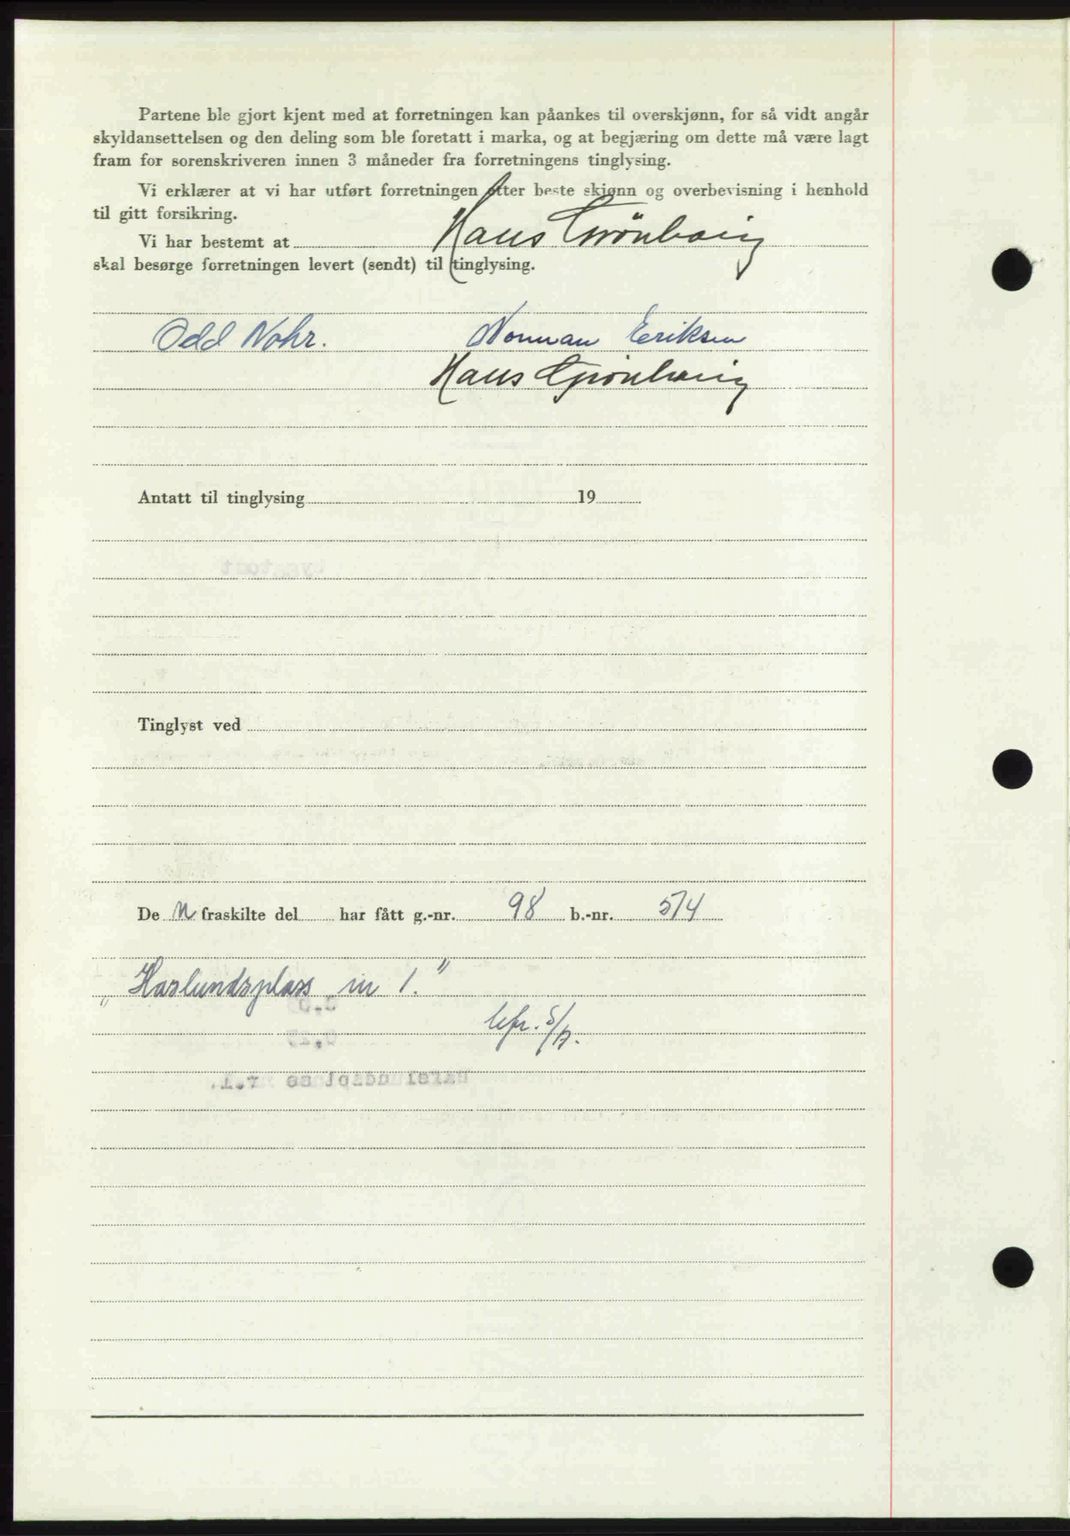 Partene ble gjort kjent med at forretningen kan påankes til overskjønn, for så vidt angår
skyldansettelsen og den deling som ble foretatt i marka, og at begjæring om dette må være lagt
fram for sorenskriveren innen 3 måneder fra forretningens tinglysing.
Vi erklærer at vi har utført forretningen etter beste skjønn og overbevisning i henhold
til gitt forsikring.
Vi har bestemt at Hans
skal besørge forretningen levert (sendt) til tinglysing.
Odd Nohr. Norman Eriksen
Hans
Antatt til tinglysing 19
Tinglyst ved
De n fraskilte del har fått g.-nr. 98 b.-nr. 574
"Haslundsplass nr 1."